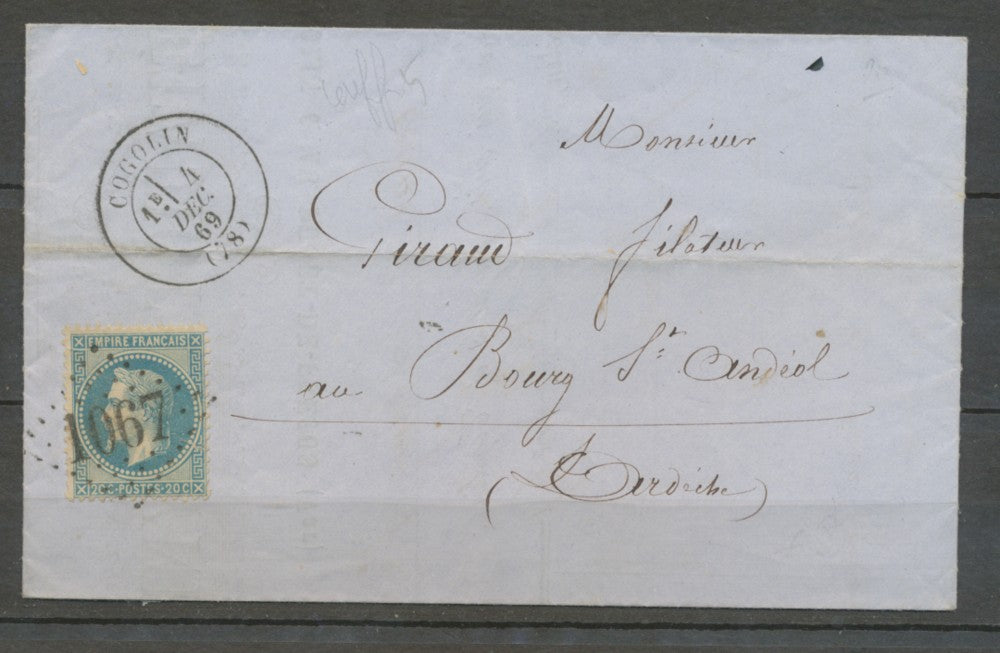 COGOLIN
1E
4
DEC.
69
(78)
Monsieur
Giraud filateur
au Bourg St. Andéol
(Lardèche)
EMPIRE FRANÇAIS
1067
20C-POSTES-20C